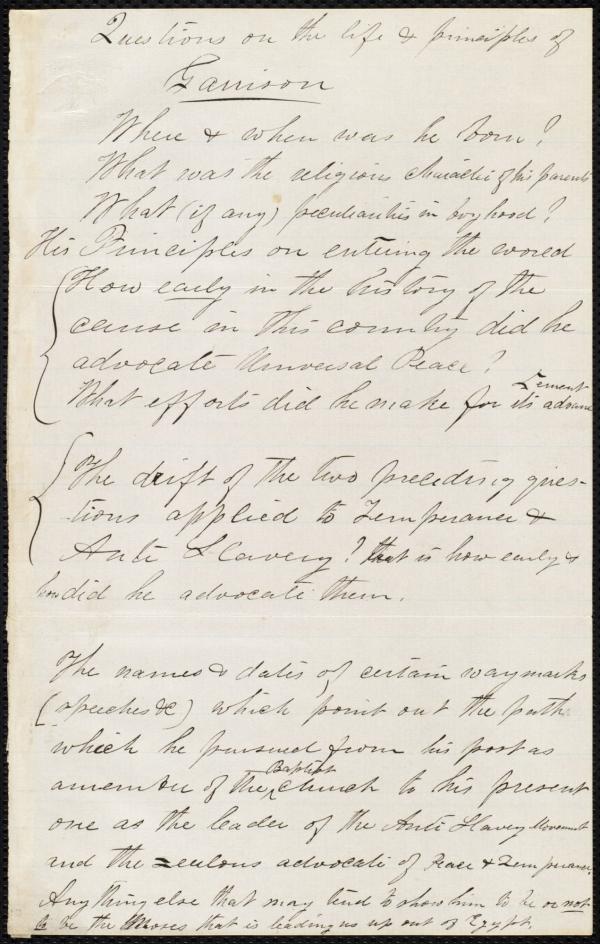 Questions on the life & principles of
Garrison
Where & when was he born?
What was the religious character of his parents
What (if any) peculiarities in boyhood?
His Principles on entering the world
How early in the history of the
cause in this country did he
advocate Universal Peace?
What efforts did he make for its advancement
The drift of the two preceding ques-
tions applied to Temperance &
Anti Slavery? that is how early &
how did he advocate them.
The names & dates of certain waymarks
(speeches &c) which point out the path
which he pursued from his post as
a member of the Baptist church to his present
one as the leader of the Anti Slavery Movement
and the zealous advocate of Peace & Temperance.
Any thing else that may tend to show him to be or not
to be the Moses that is leading us up out of Egypt.